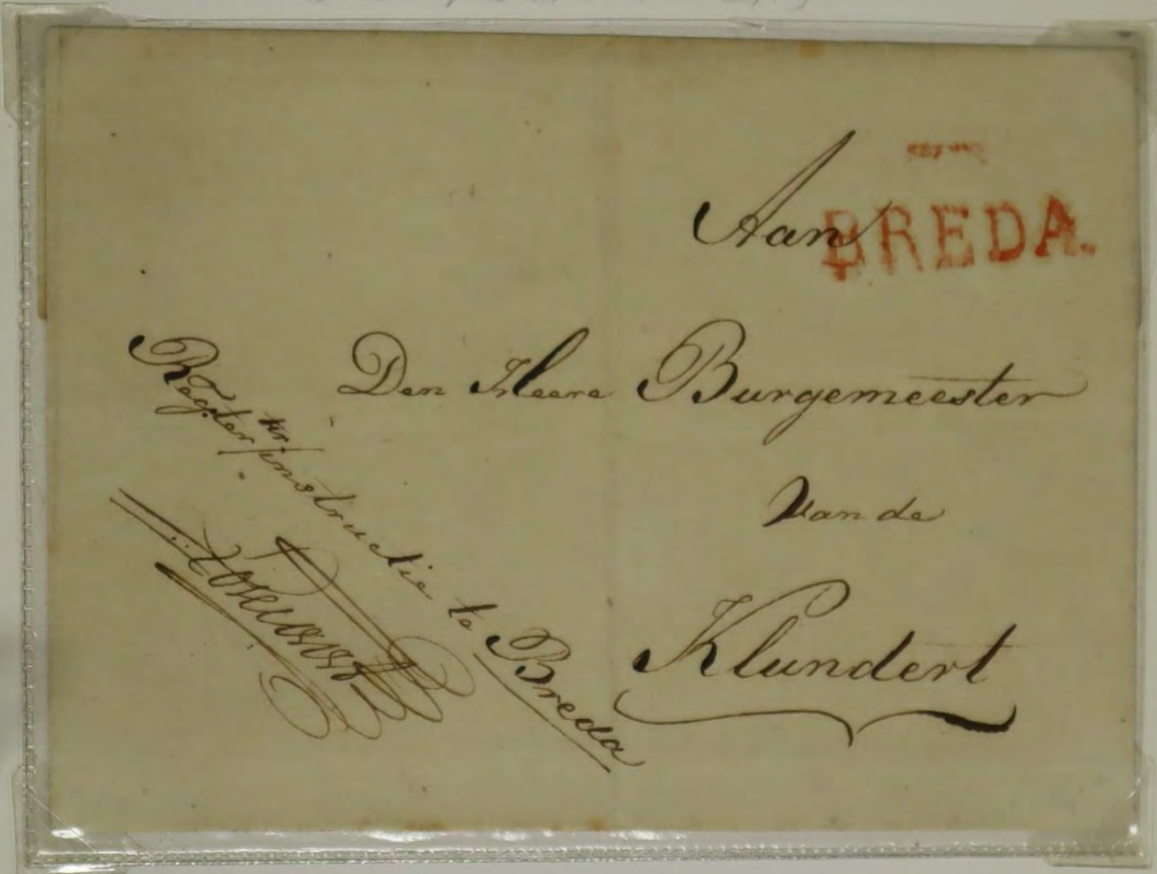 Aan
BREDA.
Den Heere Burgemeester
Van de
Klundert
Regter ter instructie te Breda